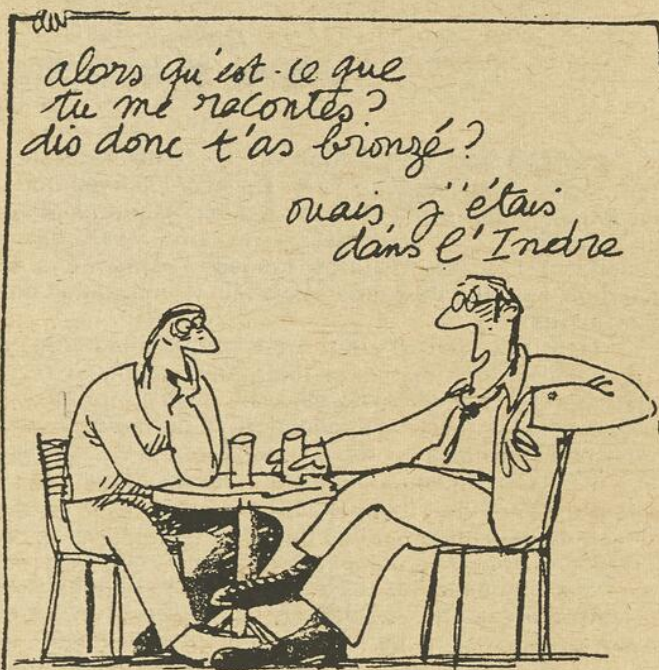 alors qu'est-ce que
tu me racontes?
dis donc t'as bronzé?
ouais j'étais
dans l'Indre